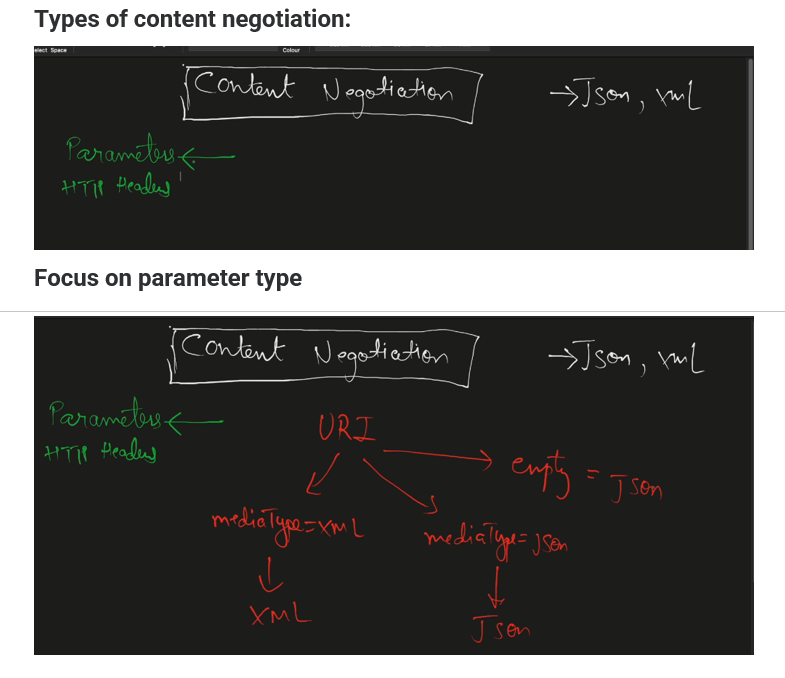 Types of content negotiation:
Select Space
Colour
Content Negotiation → Json, xml
Parameters ←
HTTP Headers
Focus on parameter type
Content Negotiation → Json, xml
Parameters ←
HTTP Headers
URI
empty = Json
mediaType=XML
mediaType=JSon
XML
Json